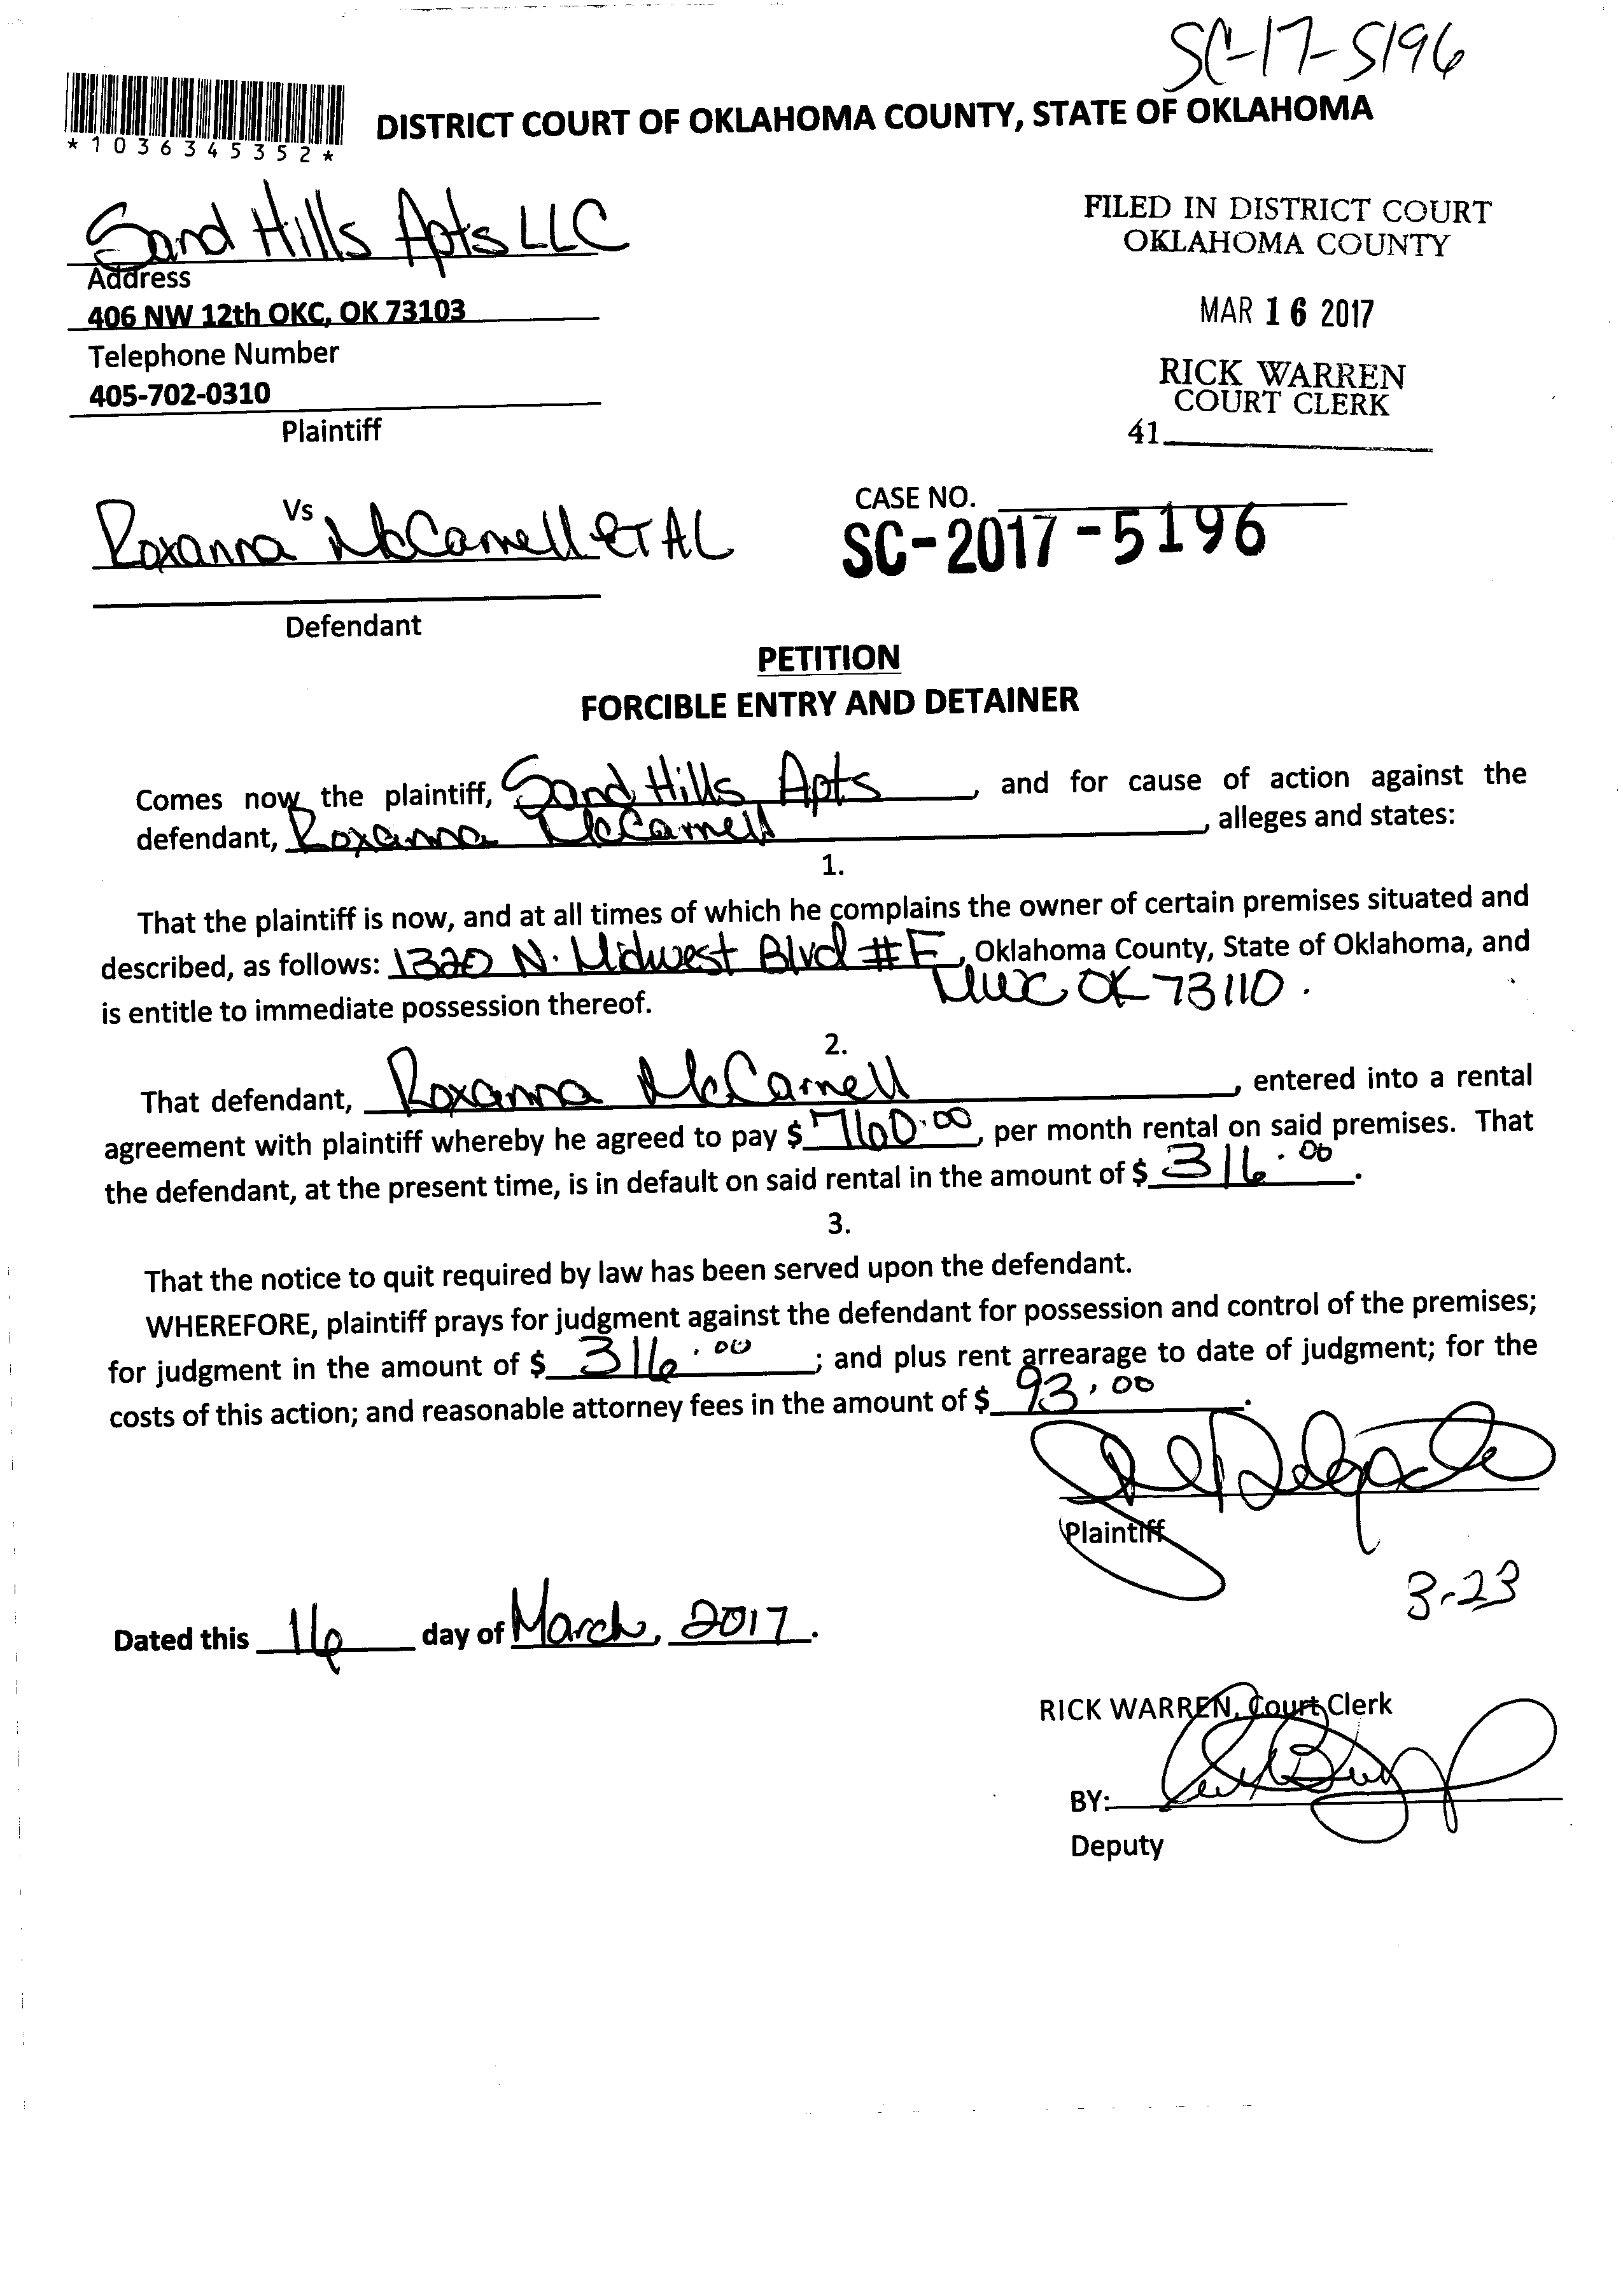 SC-17-5196
*1036345352*
DISTRICT COURT OF OKLAHOMA COUNTY, STATE OF OKLAHOMA
Sand Hills Apts LLC
Address
406 NW 12th OKC, OK 73103
Telephone Number
405-702-0310
Plaintiff
FILED IN DISTRICT COURT
OKLAHOMA COUNTY
MAR 16 2017
RICK WARREN
COURT CLERK
41
Vs
Roxanna McCarnell ET AL
Defendant
CASE NO.
SC-2017-5196
PETITION
FORCIBLE ENTRY AND DETAINER
Comes now the plaintiff, Sand Hills Apts, and for cause of action against the
defendant, Roxanna McCarnell, alleges and states:
1.
That the plaintiff is now, and at all times of which he complains the owner of certain premises situated and
described, as follows: 1320 N. Midwest Blvd #F, Oklahoma County, State of Oklahoma, and
MWC OK 73110.
is entitle to immediate possession thereof.
2.
That defendant, Roxanna McCarnell, entered into a rental
agreement with plaintiff whereby he agreed to pay $ 760.00, per month rental on said premises. That
the defendant, at the present time, is in default on said rental in the amount of $ 316.00.
3.
That the notice to quit required by law has been served upon the defendant.
WHEREFORE, plaintiff prays for judgment against the defendant for possession and control of the premises;
for judgment in the amount of $ 316.00; and plus rent arrearage to date of judgment; for the
costs of this action; and reasonable attorney fees in the amount of $ 93.00.
Plaintiff
3-23
Dated this 16 day of March, 2017.
RICK WARREN, Court Clerk
BY:
Deputy